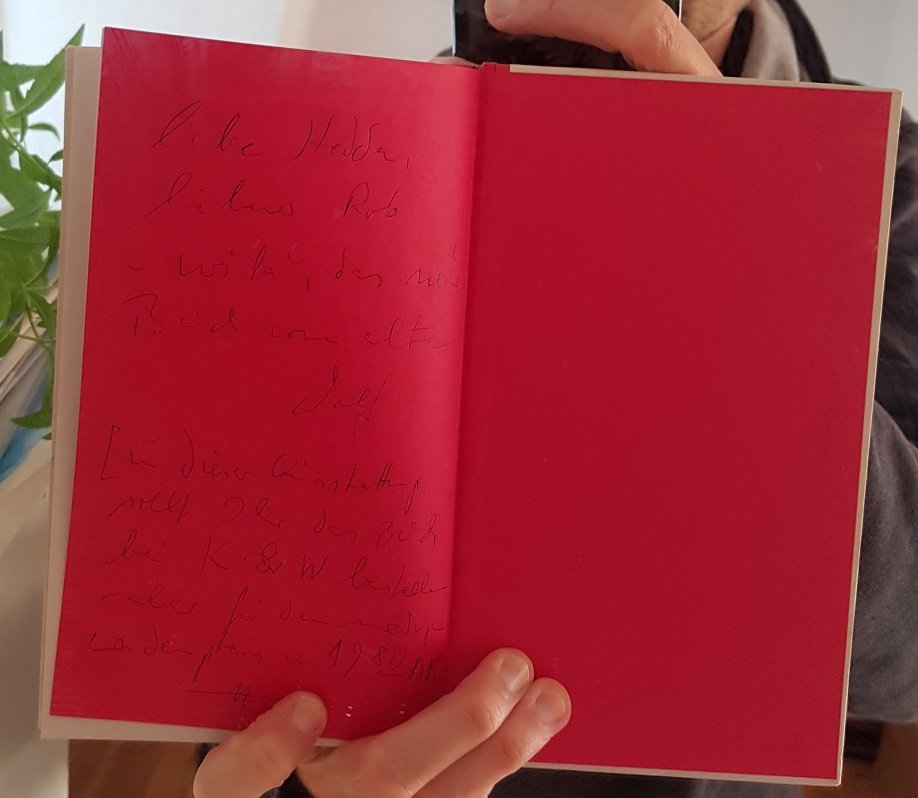 Liebe Hedda,
lieber Rob
- voilà, das neue
Buch vom alten
[in dieser Ausstattung
sollt Ihr das Buch
bei K & W bestellen
- aber für den
Ladenpreis 1980